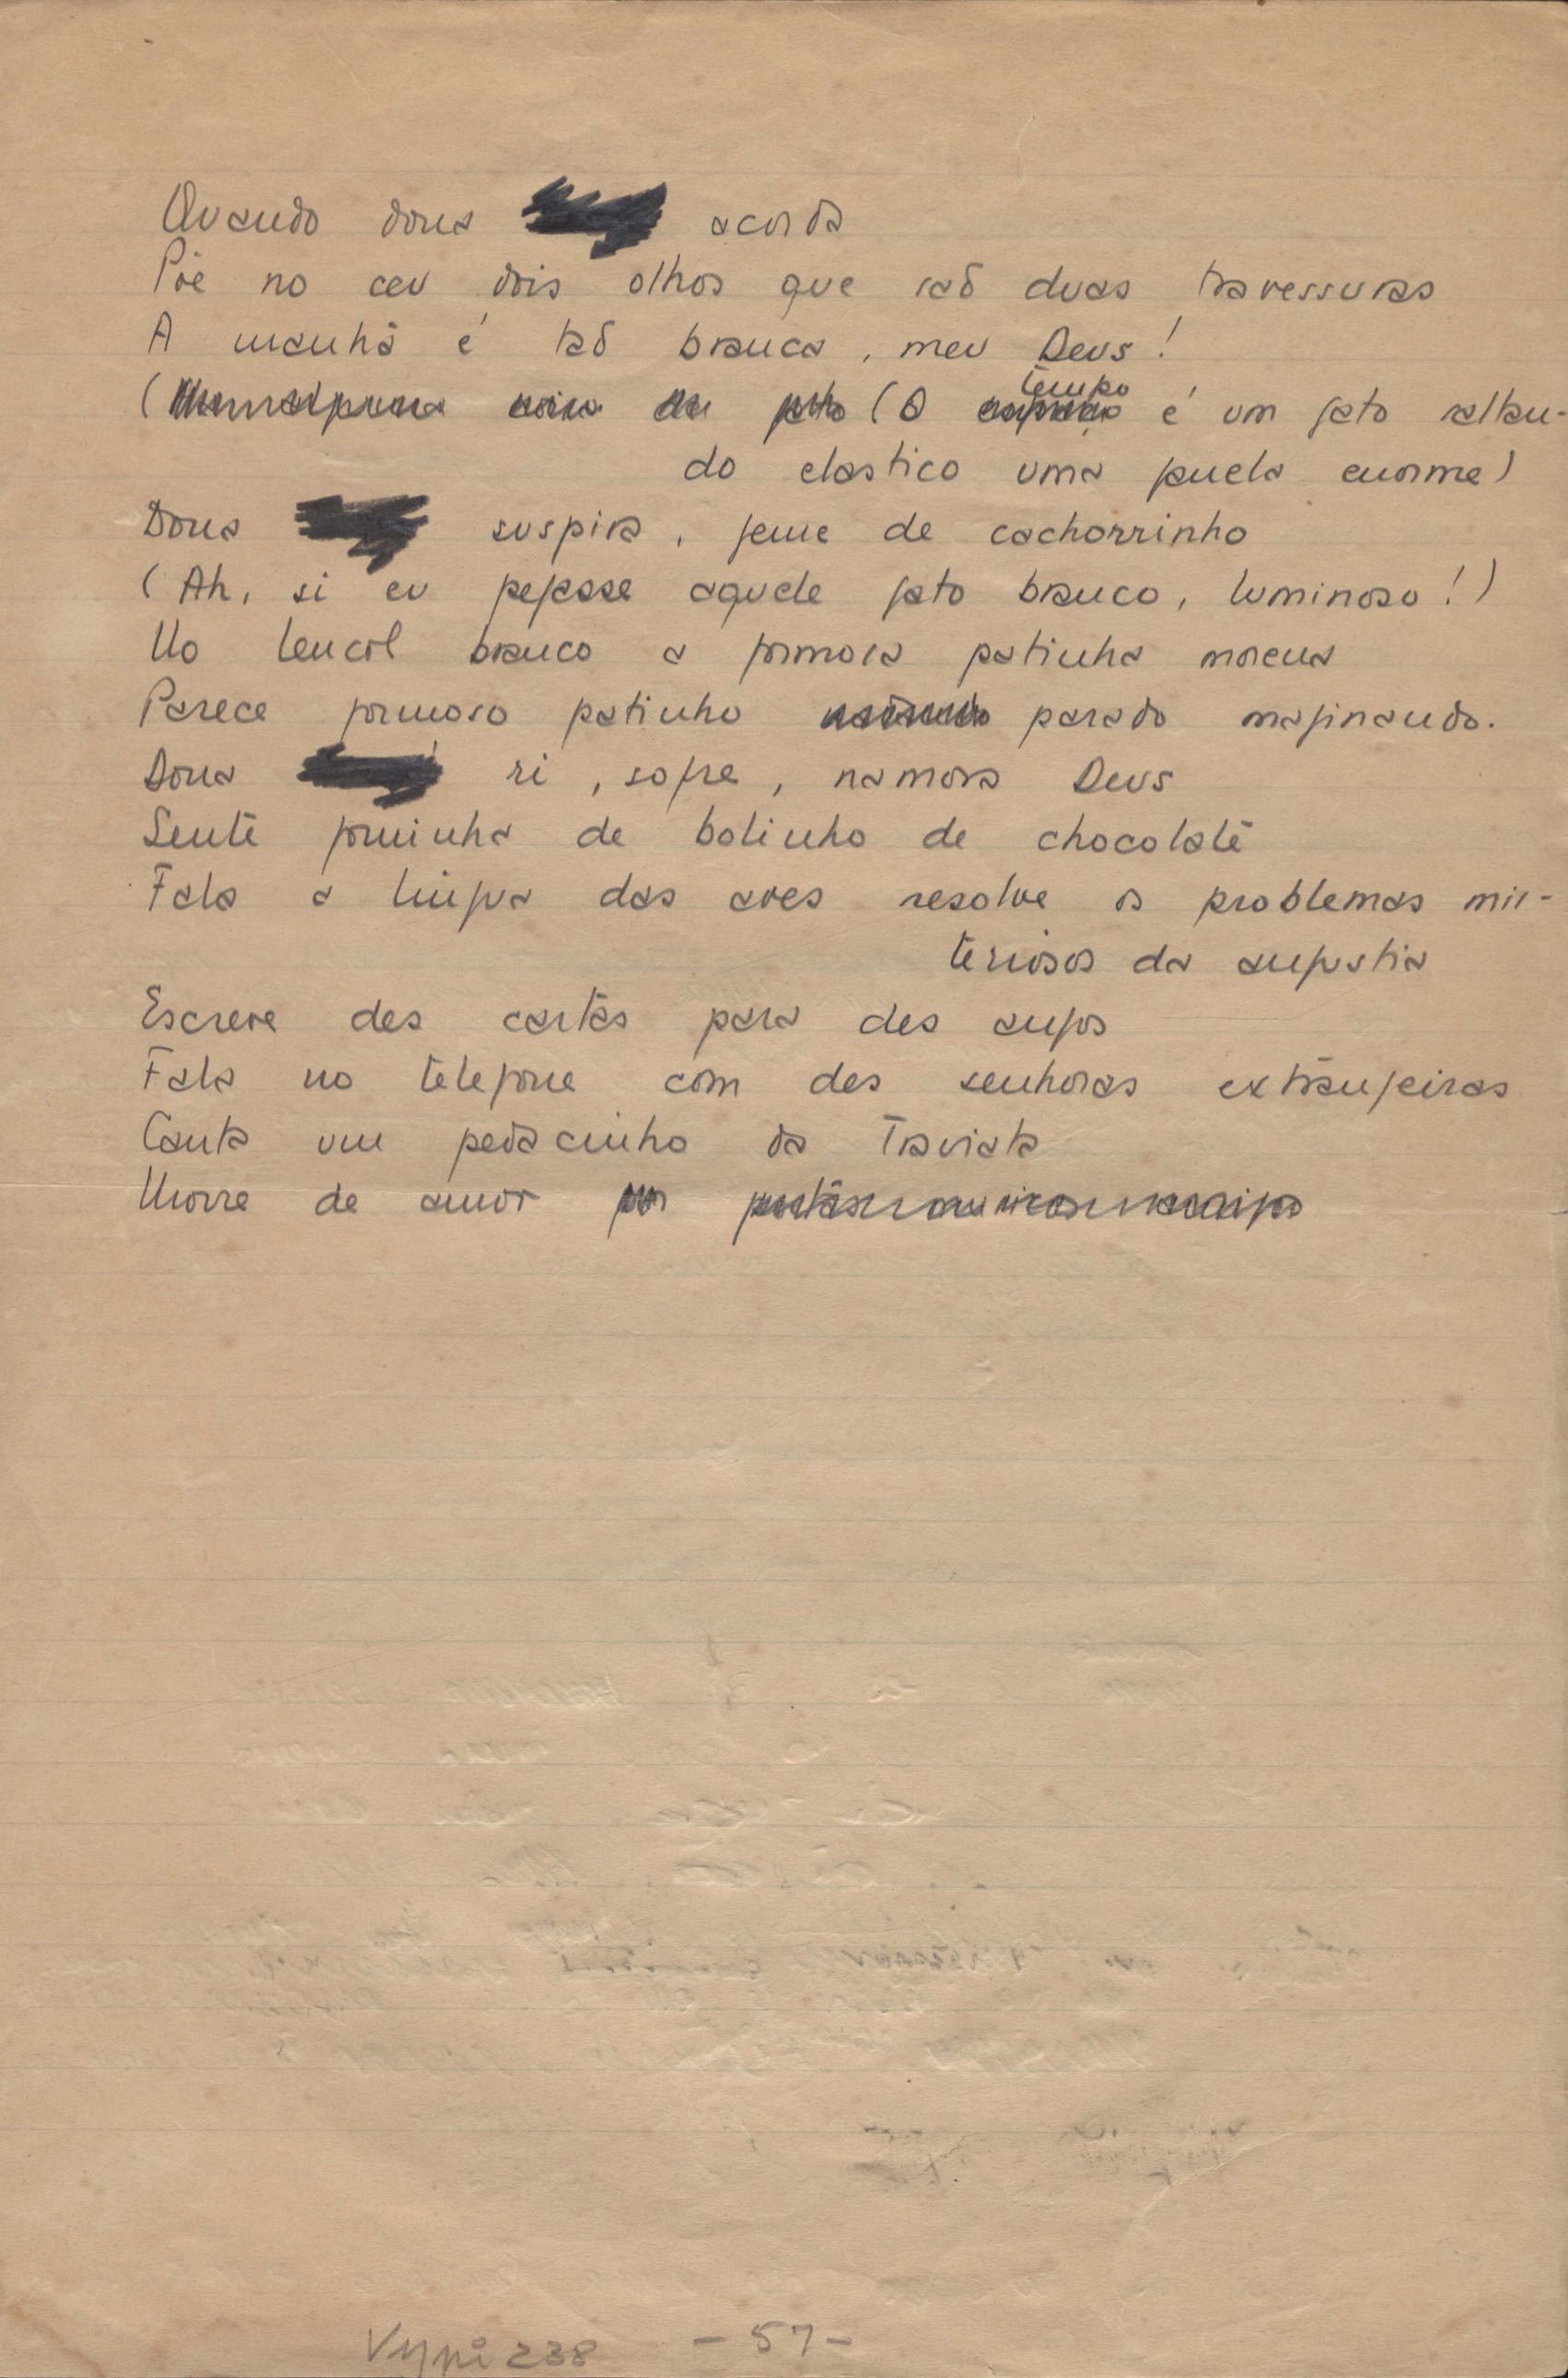 Quando dona acorda
Põe no ceu dois olhos que são duas travessuras
A manhã é tão branca, meu Deus!
tempo
( (O é um gato saltan-
do elastico uma janela enorme)
Dona suspira, geme de cachorrinho
(Ah, si eu pegasse aquele gato branco, luminoso!)
No lencol branco a formosa patinha morena
Parece formoso patinho parado maginando.
Dona ri, sofre, namora Deus
Sente fominha de bolinho de chocolate
Fala a lingua das aves resolve os problemas mis-
teriosos da angustia
Escreve des cartas para des anjos
Fala no telefone com des senhoras extrangeiras
Canta um pedacinho da Traviata
Morre de amor
Vypi 238 - 57 -